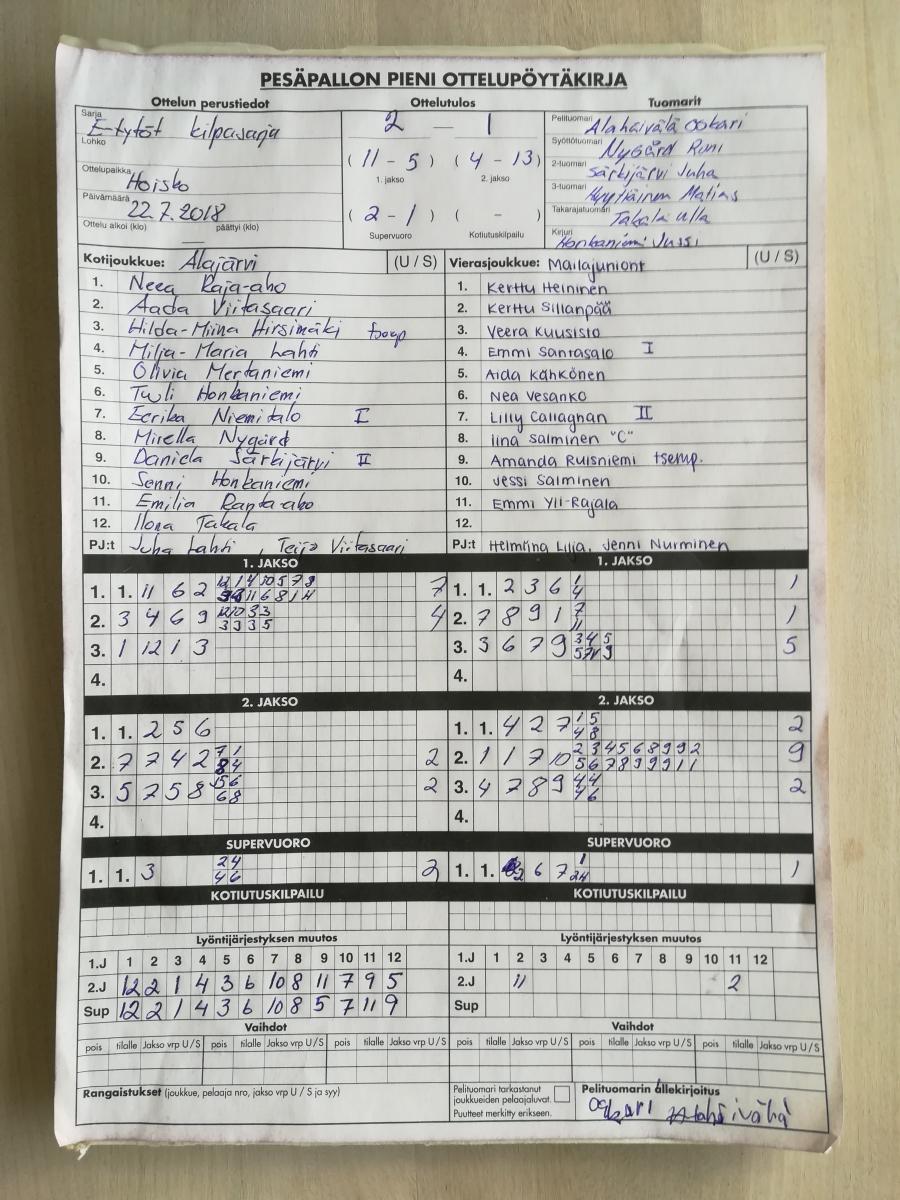 PESÄPALLON PIENI OTTELUPÖYTÄKIRJA
Ottelun perustiedot Ottelutulos Tuomarit
Sarja E-tytöt kilpasarja
Lohko
Ottelupaikka Hoisko
Päivämäärä 22.7.2018
Ottelu alkoi (klo) — päättyi (klo)
2 — 1
( 11 - 5 ) ( 4 - 13 )
1. jakso 2. jakso
( 2 - 1 ) ( - )
Supervuoro Kotiutuskilpailu
Pelituomari Alahäivälä Oskari
Syöttötuomari Nygård Roni
2-tuomari Särkijärvi Juha
3-tuomari Hyytiäinen Matias
Takarajatuomari Takala Ulla
Kirjuri Honkaniemi Jussi
Kotijoukkue: Alajärvi (U / S)
1. Neea Raja-aho
2. Aada Viitasaari
3. Hilda-Miina Hirsimäki
4. Milja-Maria Lahti
5. Olivia Mertaniemi
6. Tuuli Honkaniemi
7. Eerika Niemitalo I
8. Mirella Nygård
9. Daniela Särkijärvi II
10. Senni Honkaniemi
11. Emilia Ranta-aho
12. Ilona Takala
PJ:t Juha Lahti , Teija Viitasaari
Vierasjoukkue: Mailajuniorit (U / S)
1. Kerttu Heininen
2. Kerttu Sillanpää
3. Veera Kuusisto
4. Emmi Santasalo I
5. Aida Kähkönen
6. Nea Vesanko
7. Lilly Callaghan II
8. Iina Salminen "C"
9. Amanda Ruisniemi tsemp.
10. Jessi Salminen
11. Emmi Yli-Rajala
12.
PJ:t Helmiina Lilja, Jenni Nurminen
1. JAKSO
1. 1. 11 6 2 7
2. 3 4 6 9 12 10 3 3 4
3 9 3 5
3. 1 12 1 3
4.
1. JAKSO
1. 1. 2 3 6 1 1
4
2. 7 8 9 1 7 1
11
3. 3 6 7 9 3 4 5 5
4.
2. JAKSO
1. 1. 2 5 6
2. 7 7 4 2 7 1 2
8 4
3. 5 7 5 8 5 6 2
6 8
4.
2. JAKSO
1. 1. 4 2 7 1 5 2
4 8
2. 1 1 7 10 2 3 4 5 6 8 9 9 2 9
5 6 7 8 9 9 9 1 1
3. 4 7 8 9 4 4 2
4 6
4.
SUPERVUORO
1. 1. 3 2 4 2
4 6
SUPERVUORO
1. 1. 2 6 7 1 1
24
KOTIUTUSKILPAILU
KOTIUTUSKILPAILU
Lyöntijärjestyksen muutos
1.J 1 2 3 4 5 6 7 8 9 10 11 12
2.J 12 2 1 4 3 6 10 8 11 7 9 5
Sup 12 2 1 4 3 6 10 8 5 7 11 9
Lyöntijärjestyksen muutos
1.J 1 2 3 4 5 6 7 8 9 10 11 12
2.J 11 2
Sup
Vaihdot
pois tilalle Jakso vrp U / S pois tilalle Jakso vrp U / S pois tilalle Jakso vrp U / S
Vaihdot
pois tilalle Jakso vrp U / S pois tilalle Jakso vrp U / S pois tilalle Jakso vrp U / S
Rangaistukset (joukkue, pelaaja nro, jakso vrp U / S ja syy)
Pelituomari tarkastanut
joukkueiden pelaajaluvat.
Puutteet merkitty erikseen.
Pelituomarin allekirjoitus
Oskari Alahäivälä